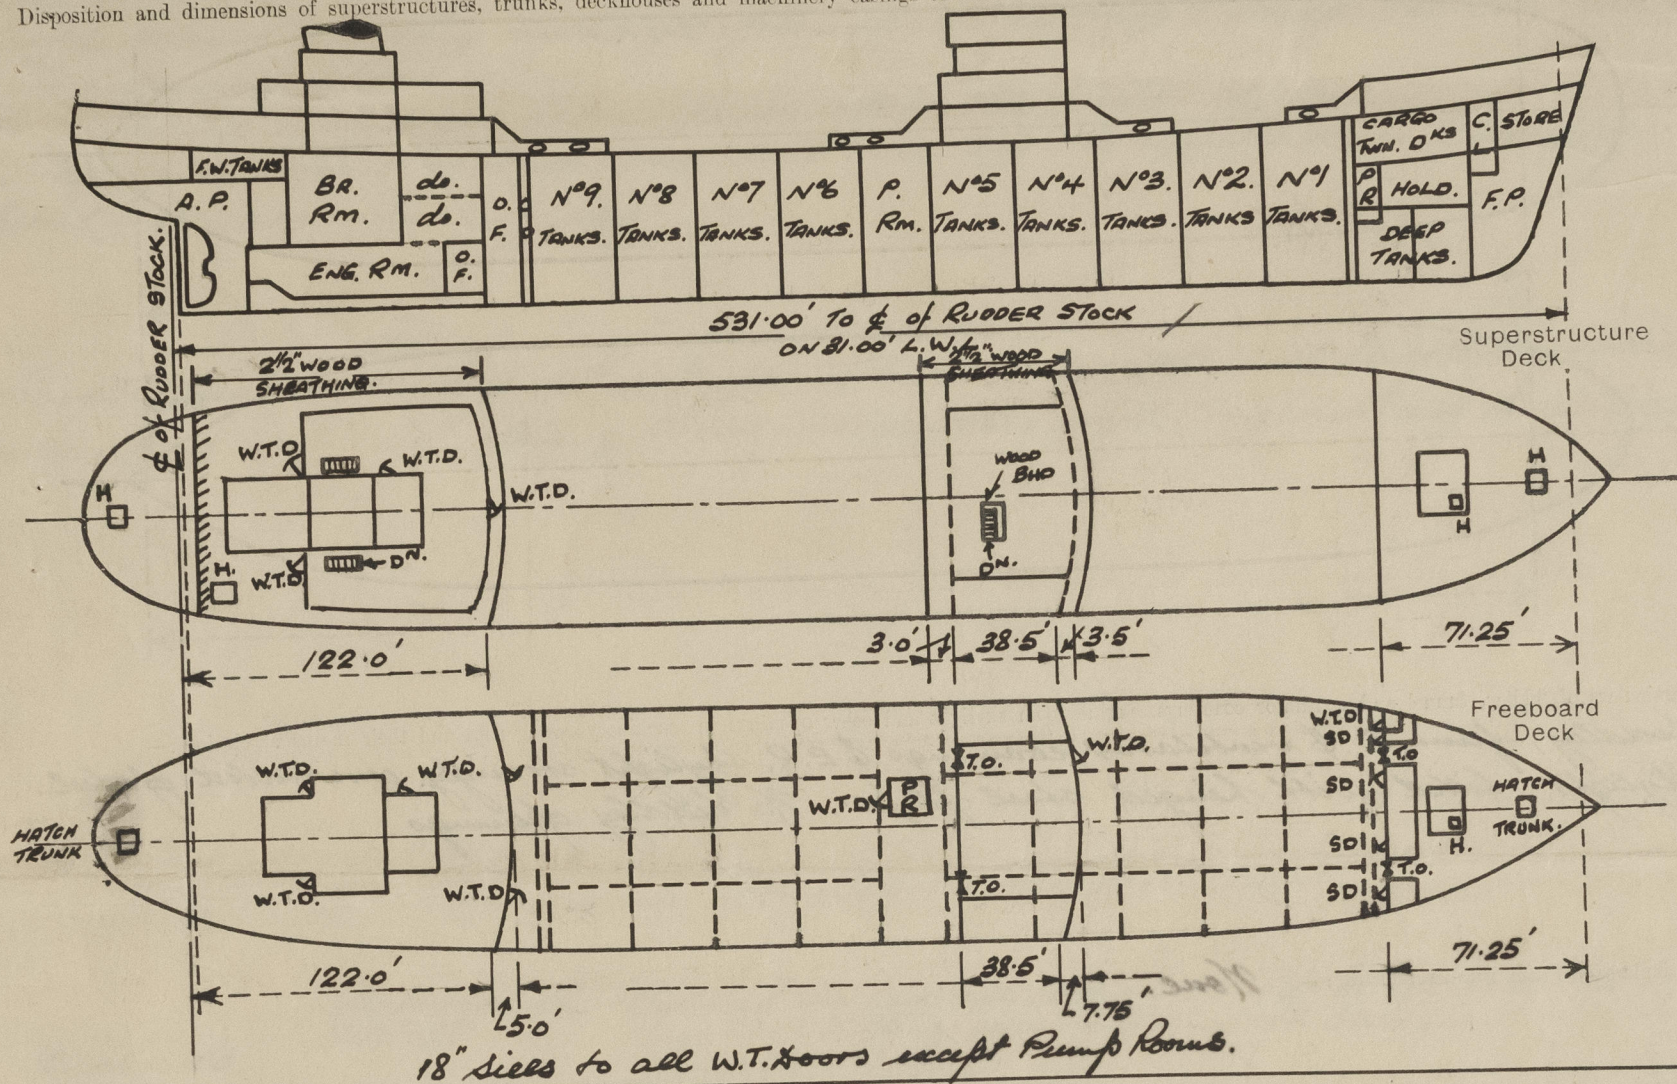 Disposition and dimensions of superstructures, trunks, deckhouses and machinery casings
F.W. TANKS
A. P.
BR. RM.
do.
do.
O. F.
ENG. RM.
O. F.
Nº9. TANKS.
Nº8 TANKS.
Nº7 TANKS.
Nº6 TANKS.
P. RM.
Nº5 TANKS.
Nº4 TANKS.
Nº3. TANKS.
Nº2. TANKS
Nº1 TANKS.
CARGO TWN. DKS
C. L
STORE
P R
HOLD.
F.P.
DEEP TANKS.
℄ of RUDDER STOCK.
531·00' TO ℄ of RUDDER STOCK
ON 31.00' L.W.L.
Superstructure
Deck
2½" WOOD
SHEATHING.
2½" WOOD
SHEATHING
W.T.D.
W.T.D.
W.T.D.
W.T.D
DN.
H
H.
WOOD
BHD
DN.
H
H
122·0'
3·0'
38·5'
3·5'
71·25'
Freeboard
Deck
HATCH
TRUNK
W.T.D.
W.T.D.
W.T.D.
W.T.D
W.T.D.
P R
T.O.
T.O.
W.T.D.
W.T.D
SD
T.O
SD
SD
T.O.
SD
HATCH
TRUNK.
H.
122·0'
5·0'
38·5'
7·75'
71·25'
None.
18" Sills to all W.T. Doors except Pump Rooms.